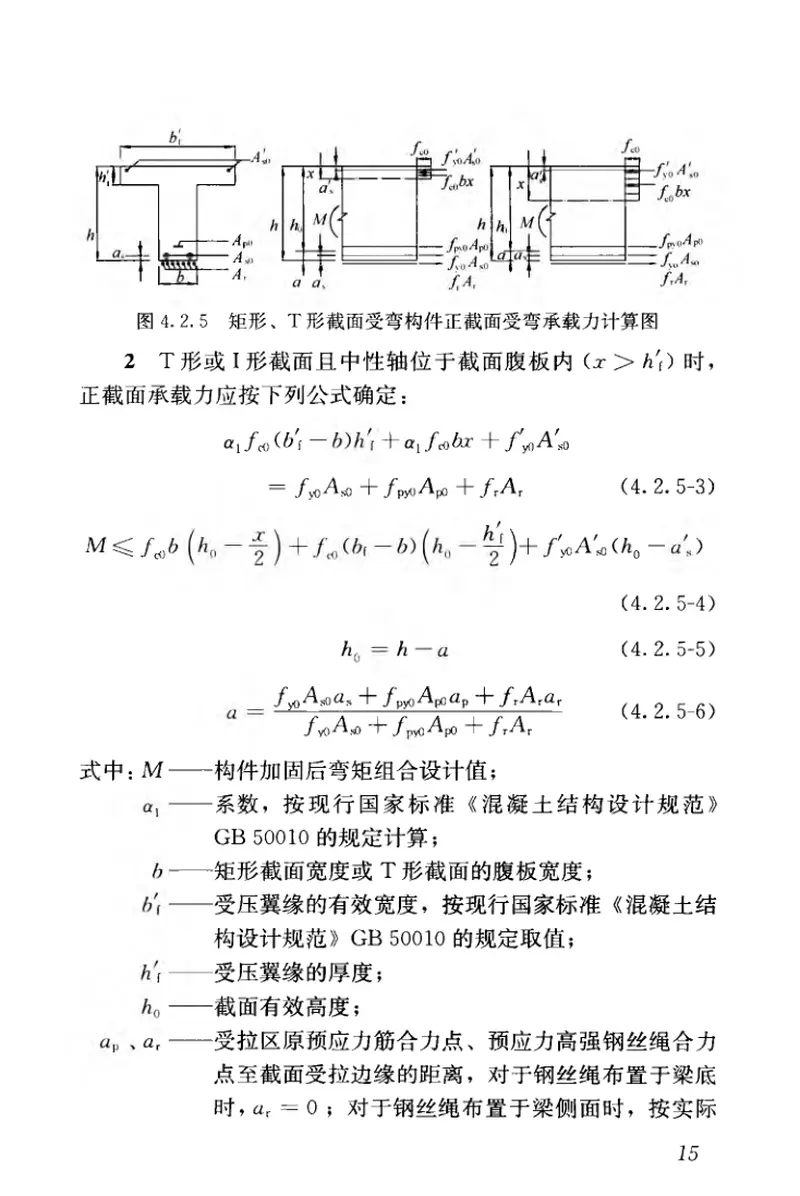 b′f
A′s0
h′f
h
a
Ap0
As0
Ar
b
fc0
f′y0A′s0
fc0bx
x
a′s
h
h0
M
fpy0Ap0
fy0As0
frAr
a as
fc0
f′y0A′s0
fc0bx
x
a′s
h
h0
M
fpy0Ap0
fy0As0
frAr
a as
图 4.2.5 矩形、T 形截面受弯构件正截面受弯承载力计算图
2 T 形或 I 形截面且中性轴位于截面腹板内 (x > h′f) 时,
正截面承载力应按下列公式确定:
α1 fc0 (b′f − b)h′f + α1 fc0 bx + f′y0 A′s0
= fy0 As0 + fpy0 Ap0 + fr Ar (4.2.5-3)
M ≤ fc0 b (h0 − x/2) + fc0 (bf − b)(h0 − h′f/2) + f′y0 A′s0 (h0 − a′s)
(4.2.5-4)
h0 = h − a (4.2.5-5)
a = (fy0 As0 as + fpy0 Ap0 ap + fr Ar ar) / (fy0 As0 + fpy0 Ap0 + fr Ar) (4.2.5-6)
式中: M ——构件加固后弯矩组合设计值;
α1 ——系数, 按现行国家标准《混凝土结构设计规范》
GB 50010 的规定计算;
b ——矩形截面宽度或 T 形截面的腹板宽度;
b′f ——受压翼缘的有效宽度, 按现行国家标准《混凝土结
构设计规范》GB 50010 的规定取值;
h′f ——受压翼缘的厚度;
h0 ——截面有效高度;
ap 、ar ——受拉区原预应力筋合力点、预应力高强钢丝绳合力
点至截面受拉边缘的距离, 对于钢丝绳布置于梁底
时, ar = 0 ; 对于钢丝绳布置于梁侧面时, 按实际
15